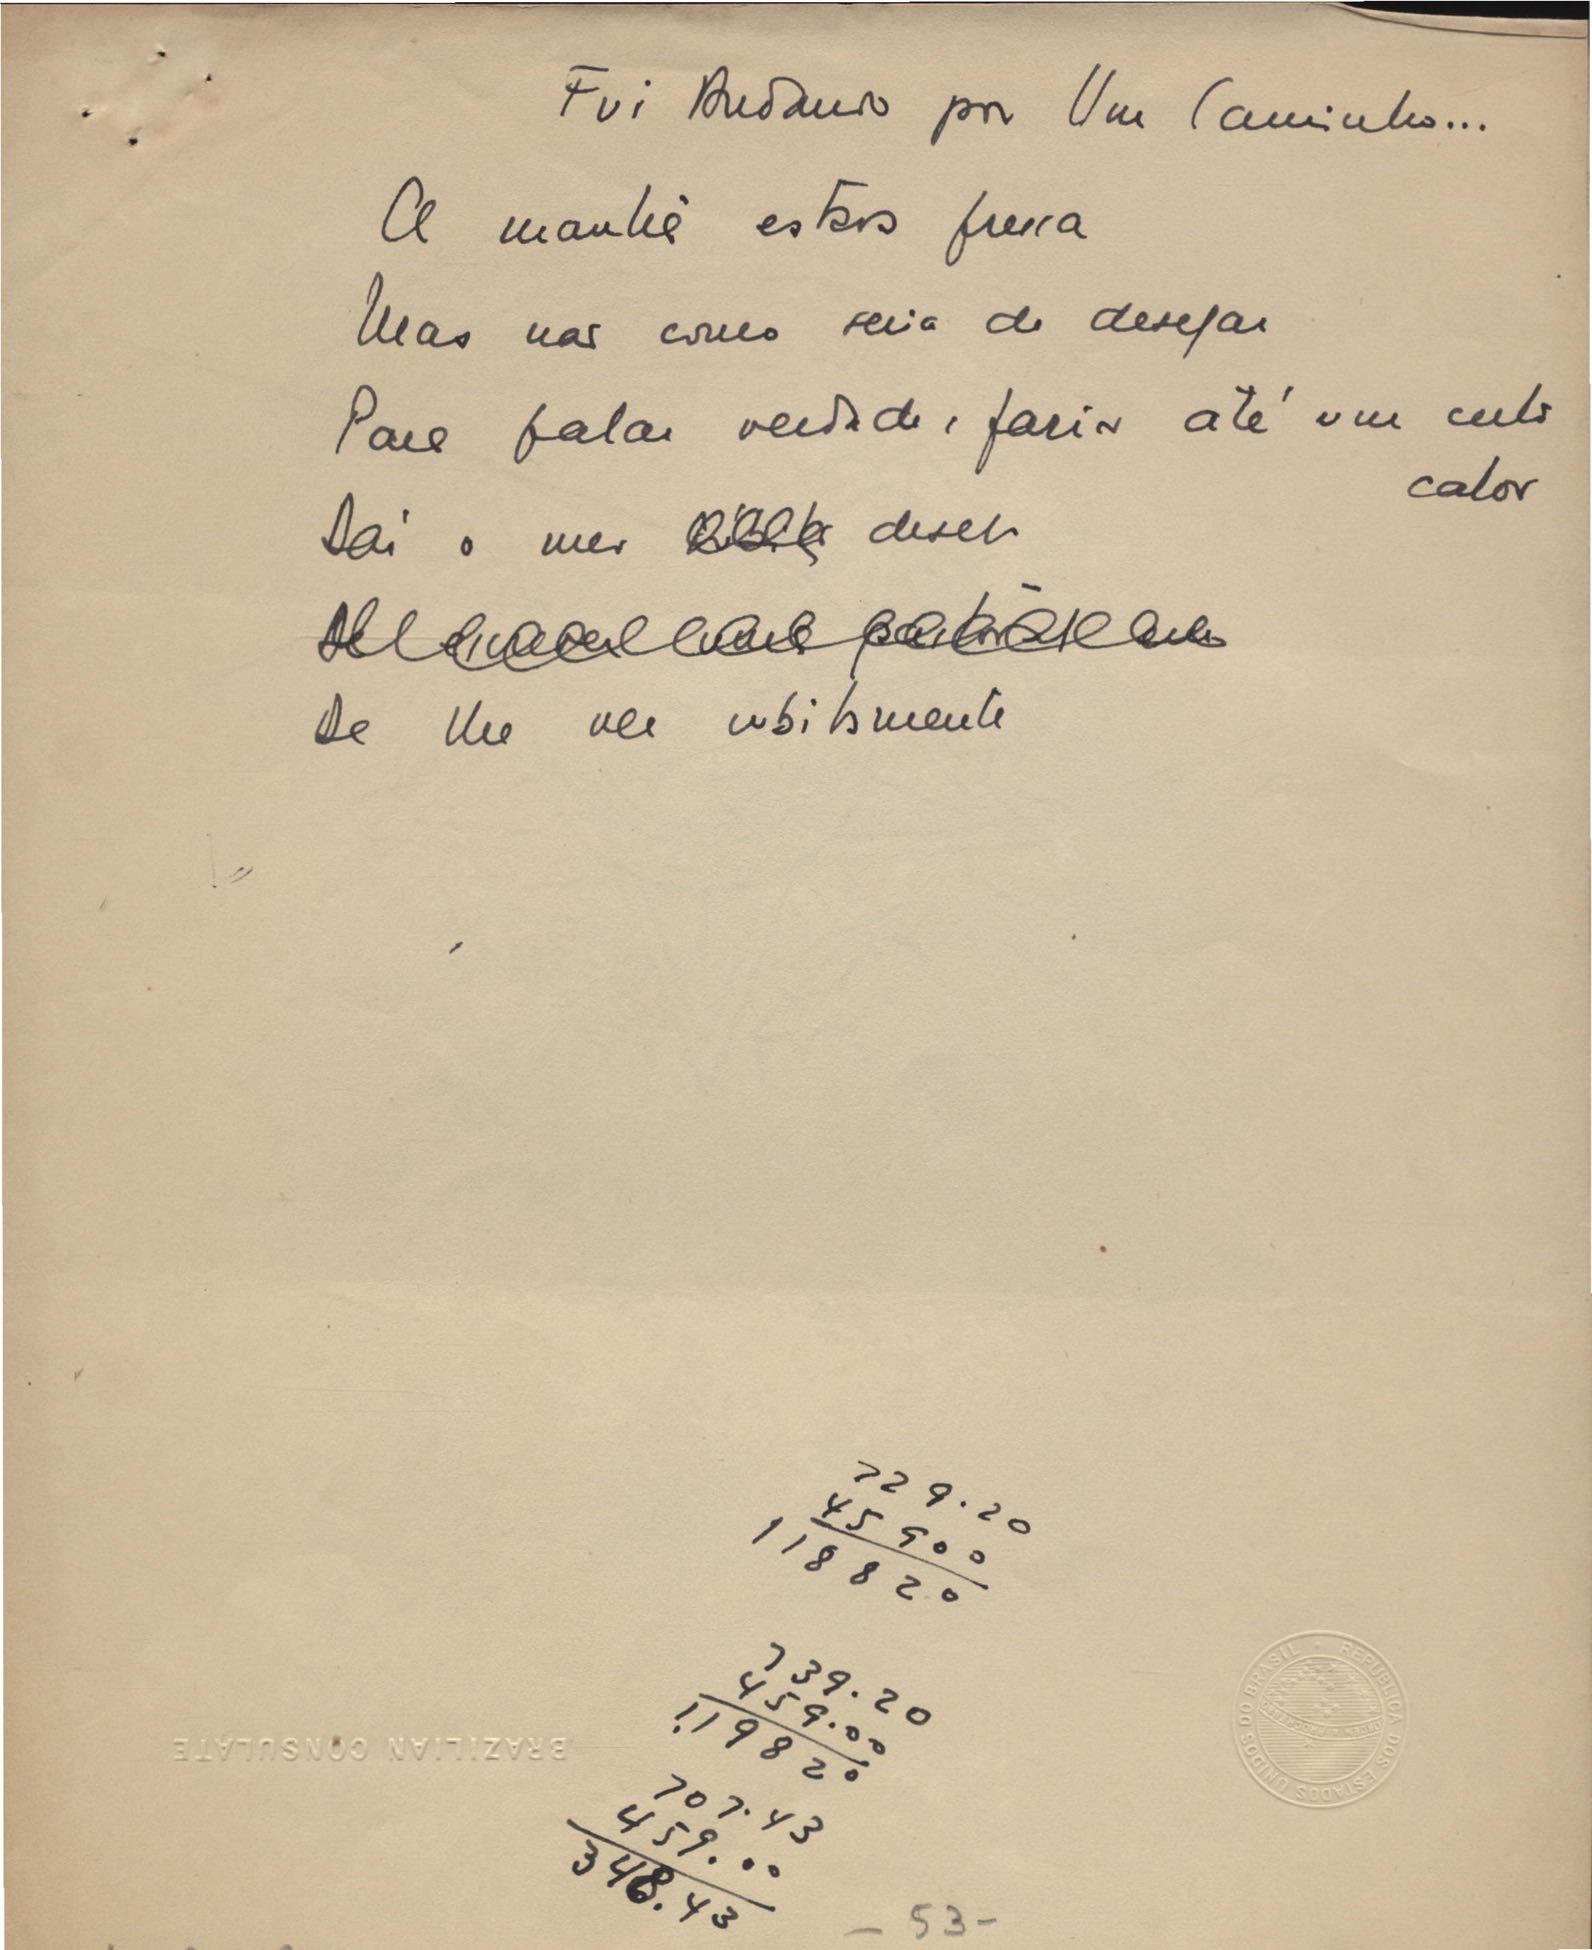 Fui Andando por Um Caminho...
A manhã estava fresca
Mas não como seria de desejar
Para falar verdade, fazia até um certo
calor
Daí o meu desejo
De lhe ver subitamente
729.20
45900
118820
739.20
459.00
119820
707.43
459.00
348.43
BRAZILIAN CONSULATE
REPUBLICA DOS ESTADOS UNIDOS DO BRASIL
- 53 -